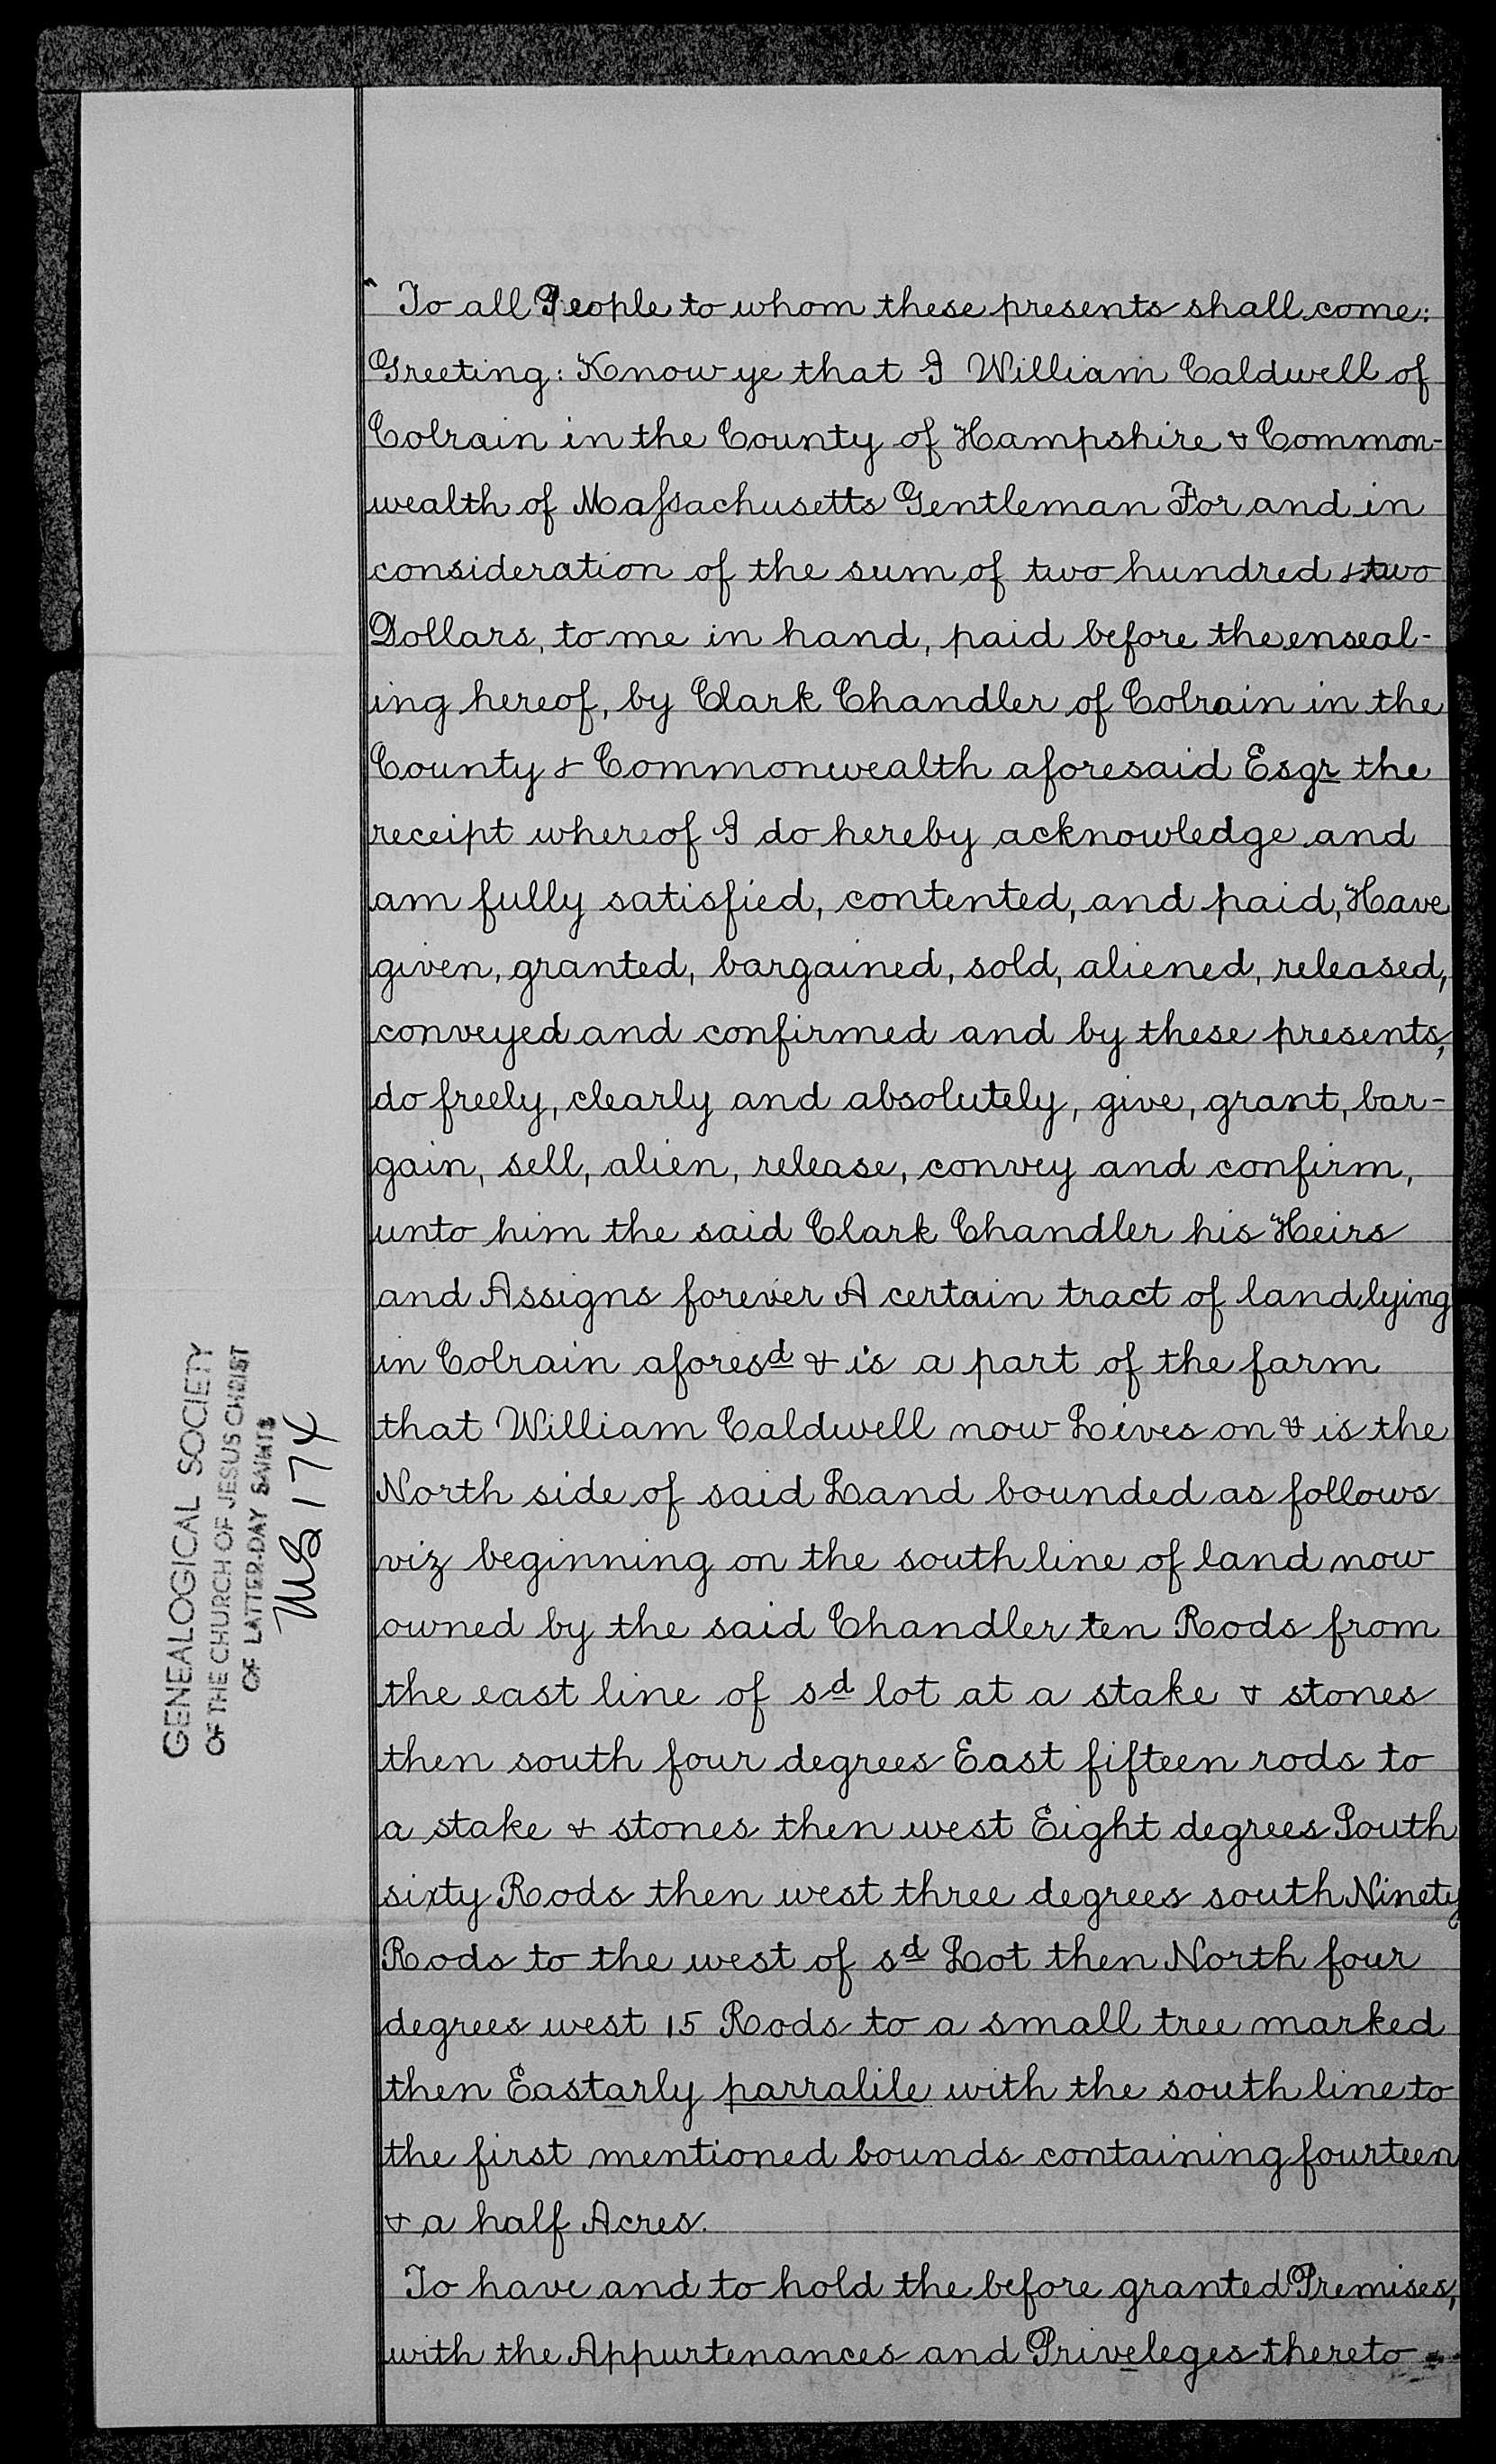 " To all People to whom these presents shall come:
Greeting: Know ye that I William Caldwell of
Colrain in the County of Hampshire & Common-
wealth of Maſsachusetts Gentleman For and in
consideration of the sum of two hundred & two
Dollars, to me in hand, paid before the enseal-
ing hereof, by Clark Chandler of Colrain in the
County & Commonwealth aforesaid Esqr the
receipt whereof I do hereby acknowledge and
am fully satisfied, contented, and paid, Have
given, granted, bargained, sold, aliened, released,
conveyed and confirmed and by these presents,
do freely, clearly and absolutely, give, grant, bar-
gain, sell, alien, release, convey and confirm,
unto him the said Clark Chandler his Heirs
and Assigns forever A certain tract of land lying
in Colrain aforesd & is a part of the farm
that William Caldwell now Lives on & is the
North side of said Land bounded as follows
viz beginning on the south line of land now
owned by the said Chandler ten Rods from
the east line of sd lot at a stake & stones
then south four degrees East fifteen rods to
a stake & stones then west Eight degrees South
sixty Rods then west three degrees south Ninety
Rods to the west of sd Lot then North four
degrees west 15 Rods to a small tree marked
then Eastarly parralile with the south line to
the first mentioned bounds containing fourteen
& a half Acres.
To have and to hold the before granted Premises,
with the Appurtenances and Priveleges thereto
GENEALOGICAL SOCIETY
OF THE CHURCH OF JESUS CHRIST
OF LATTER-DAY SAINTS
174